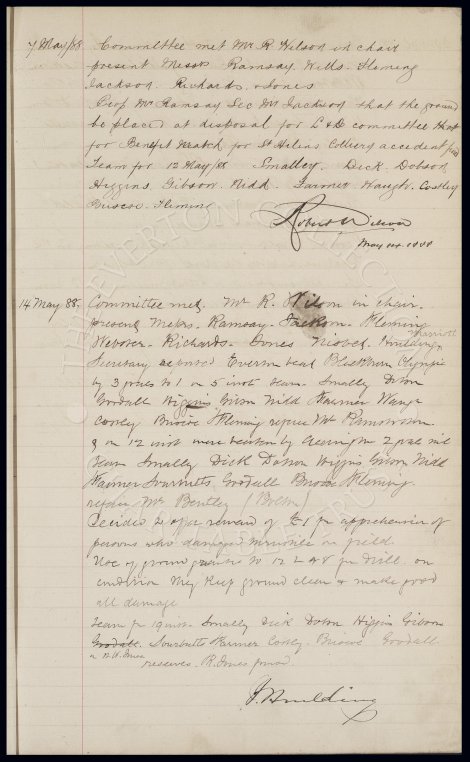 7 May/88. Committee met Mr R. Wilson in chair
present Messrs Ramsay. Wills. Fleming
Jackson. Richards & Jones
Prop Mr Ramsay Sec Mr Jackson that the ground
be placed at disposal for L & D committee that
for Benefit Match for St Helens Colliery accident fund
Team for 12 May/88 Smalley. Dick. Dobson
Higgins Gibson. Weir. Farmer Waugh. Costley
Briscoe. Fleming
Robert Wilson
May 14 1888
14 May 88. Committee met. Mr R. Wilson in chair.
present Messrs. Ramsay. Jackson. Fleming
Webster. Richards. Jones Nisbet. Houlding
Secretary reported Everton beat Blackburn Olympic
by 3 goals to 1 on 5 inst team. Smally Dobson
Goodall Higgins Gibson Farmer Waugh
Costley Briscoe Fleming referee Mr
& on 12 inst were beaten by Accrington 2 nil
team Smally Dick Dobson Higgins Gibson
Farmer Goodall Briscoe Fleming.
referee Mr Bentley (Bolton)
Decided to offer reward of £1 for apprehension of
persons who damaged on field.
Use of ground granted to for drill. on
condition they keep ground clear & make good
all damage
team for 19 inst. Smally Dick Dobson Higgins Gibson
Goodall. Farmer Costley. Briscoe Goodall
reserves. R. Jones
J. Houlding
THE EVERTON COLLECTION